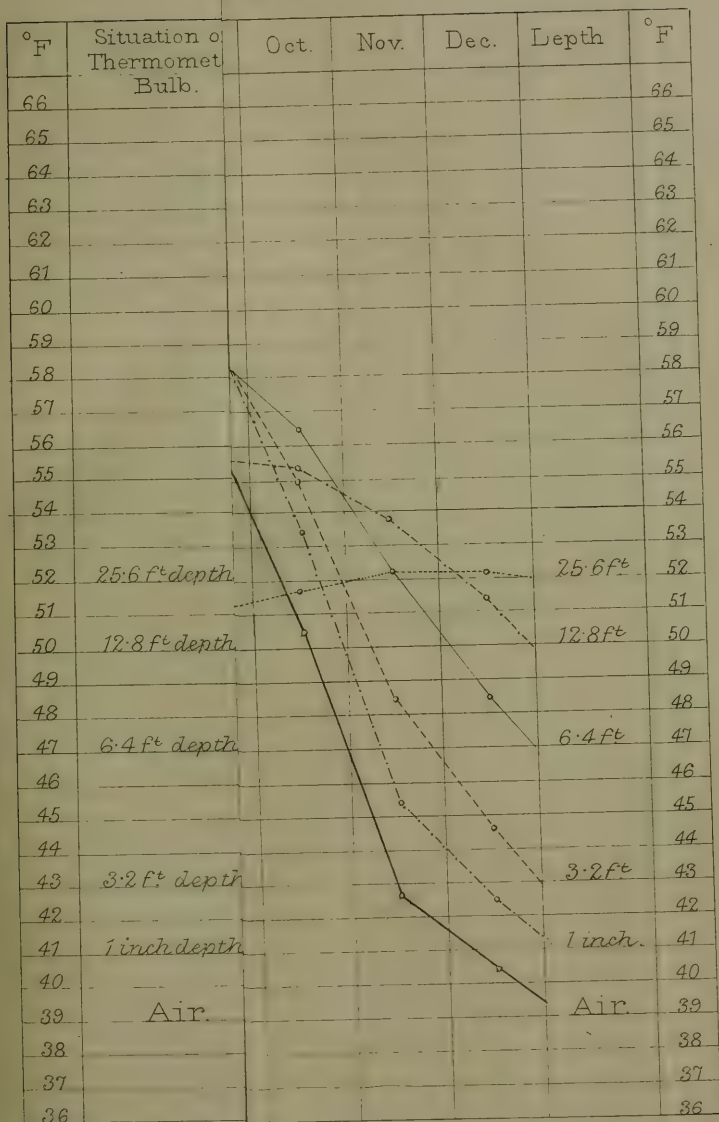 °F Situation o Thermomet Bulb. Oct. Nov. Dec. Depth °F
66 66
65 65
64 64
63 63
62 62
61 61
60 60
59 59
58 58
57 57
56 56
55 55
54 54
53 53
52 25·6 ft depth 25·6 ft 52
51 51
50 12·8 ft depth 12·8 ft 50
49 49
48 48
47 6·4 ft depth 6·4 ft 47
46 46
45 45
44 44
43 3·2 ft depth 3·2 ft 43
42 42
41 1 inch depth 1 inch. 41
40 40
39 Air. Air. 39
38 38
37 37
36 36